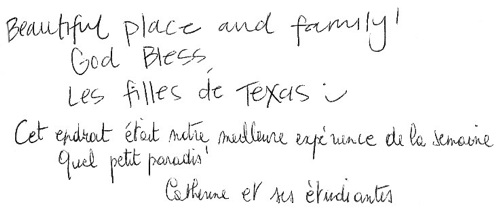 Beautiful place and family!
God Bless,
Les filles de Texas :)
Cet endroit était notre meilleure expérience de la semaine
Quel petit paradis!
Catherine et ses étudiantes